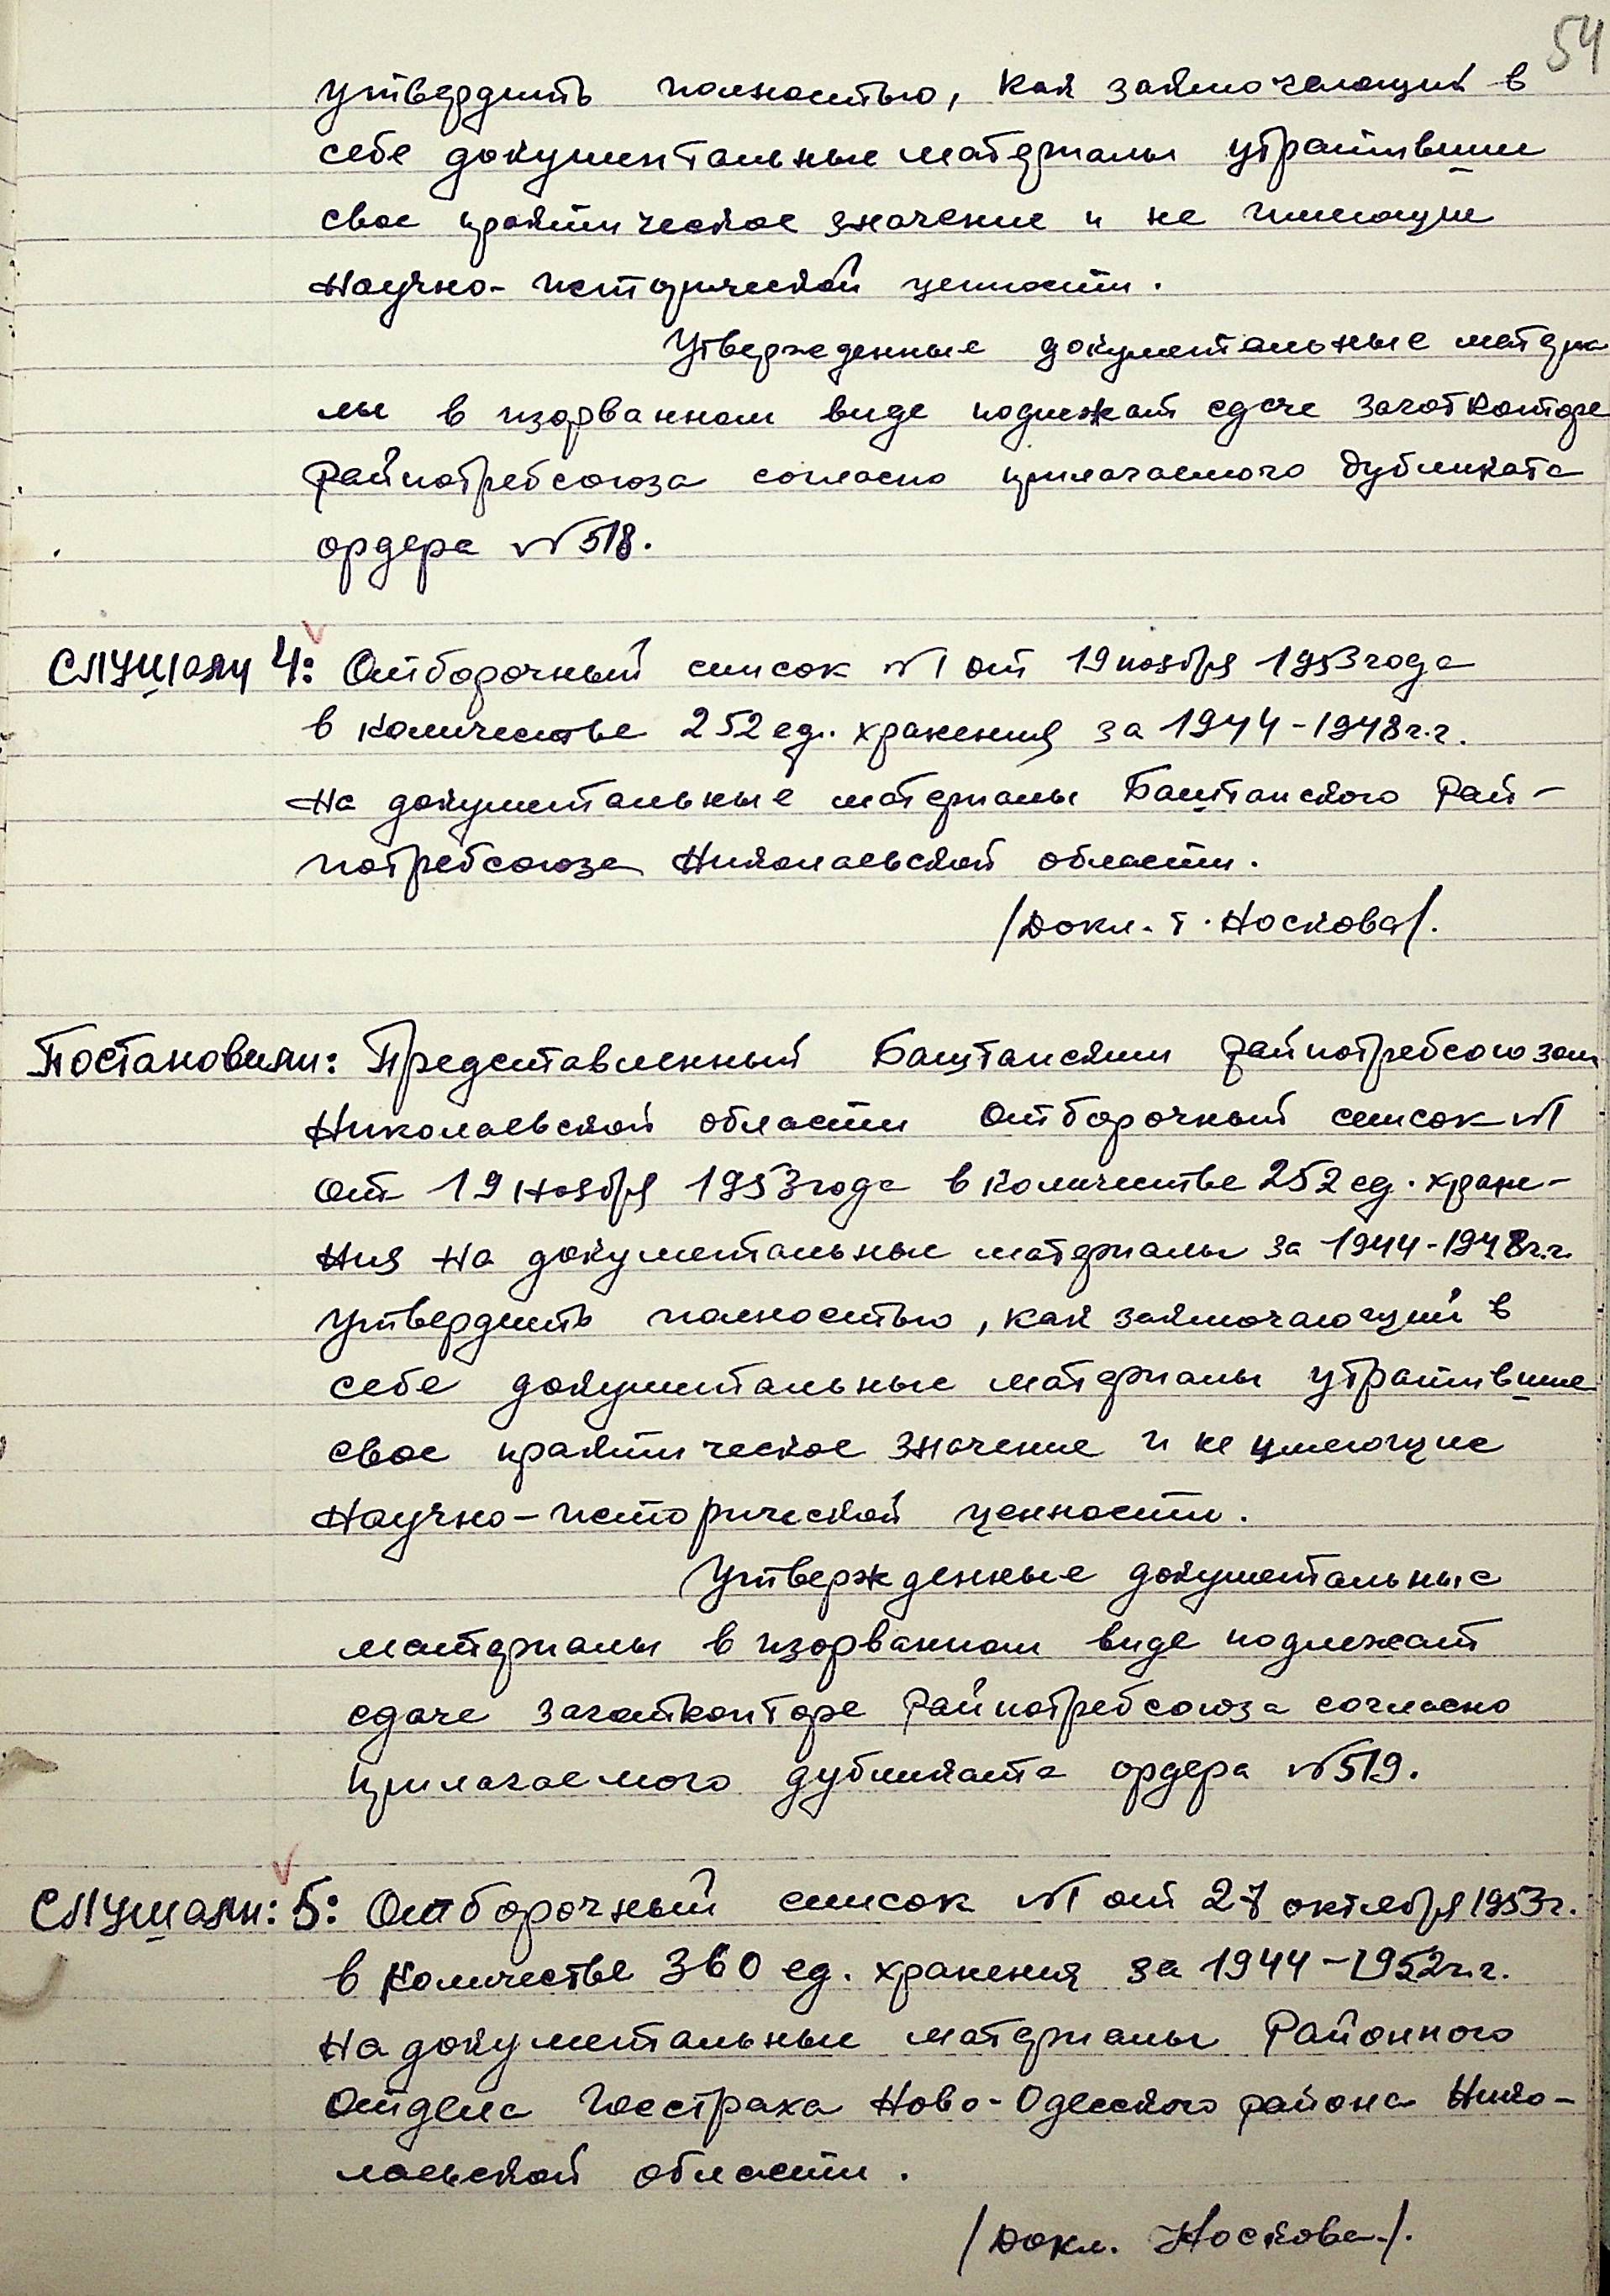 54
утвердить полностью, как заключающий в
себе документальные материалы утратившие
свое практическое значение и не имеющие
научно-исторической ценности.
Утвержденные документальные материа
лы в изорванном виде подлежат сдаче заготконторе
Райпотребсоюза согласно прилагаемого дубликата
ордера №518.
Слушали 4: Отборочный список №1 от 19 ноября 1953 года
в количестве 252 ед. хранения за 1944-1948 г.г.
на документальные материалы Баштанского Рай-
потребсоюза Николаевской области.
/Докл. т. Носкова/.
Постановили: Представленный Баштанским райпотребсоюзом
Николаевской области отборочный список №1
от 19 ноября 1953 года в количестве 252 ед. хране-
ния на документальные материалы за 1944-1948 г.г.
утвердить полностью, как заключающий в
себе документальные материалы утратившие
свое практическое значение и не имеющие
научно-исторической ценности.
Утвержденные документальные
материалы в изорванном виде подлежат
сдаче заготконторе Райпотребсоюза согласно
прилагаемого дубликата ордера №519.
Слушали: 5: Отборочный список №1 от 27 октября 1953 г.
в количестве 360 ед. хранения за 1944-1952 г.г.
на документальные материалы Районного
Отдела Госстраха Ново-Одесского района Нико-
лаевской области.
/Докл. Носкова/.